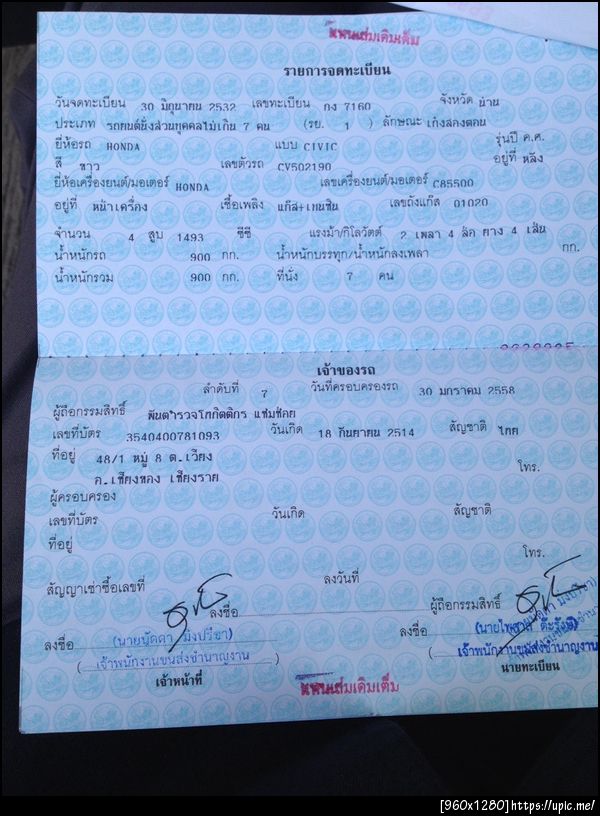 แทนเล่มเดิมเต็ม
รายการจดทะเบียน
วันจดทะเบียน 30 มิถุนายน 2532 เลขทะเบียน กง 7160 จังหวัด น่าน
ประเภท รถยนต์นั่งส่วนบุคคลไม่เกิน 7 คน (รย. 1 ) ลักษณะ เก๋งสองตอน
ยี่ห้อรถ HONDA แบบ CIVIC รุ่นปี ค.ศ.
สี ขาว เลขตัวรถ CV502190 อยู่ที่ หลัง
ยี่ห้อเครื่องยนต์/มอเตอร์ HONDA เลขเครื่องยนต์/มอเตอร์ C85500
อยู่ที่ หน้าเครื่อง เชื้อเพลิง แก๊ส+เบนซิน เลขถังแก๊ส 01020
จำนวน 4 สูบ 1493 ซีซี แรงม้า/กิโลวัตต์ 2 เพลา 4 ล้อ ยาง 4 เส้น
น้ำหนักรถ 900 กก. น้ำหนักบรรทุก/น้ำหนักลงเพลา กก.
น้ำหนักรวม 900 กก. ที่นั่ง 7 คน
เจ้าของรถ
ลำดับที่ 7 วันที่ครอบครองรถ 30 มกราคม 2558
ผู้ถือกรรมสิทธิ์ พันตำรวจโทกิตติกร แซ่มช้อย
เลขที่บัตร 3540400781093 วันเกิด 18 กันยายน 2514 สัญชาติ ไทย
ที่อยู่ 48/1 หมู่ 8 ต.เวียง
อ.เชียงของ เชียงราย โทร.
ผู้ครอบครอง
เลขที่บัตร วันเกิด สัญชาติ
ที่อยู่ โทร.
สัญญาเช่าซื้อเลขที่ ลงวันที่
ลงชื่อ ผู้ถือกรรมสิทธิ์
ลงชื่อ (นายนัดดา มิ่งปรีชา) ลงชื่อ
(เจ้าพนักงานขนส่งชำนาญงาน) (เจ้าพนักงานขนส่งชำนาญงาน
เจ้าหน้าที่ นายทะเบียน
แทนเล่มเดิมเต็ม
[960x1280]https://upic.me/